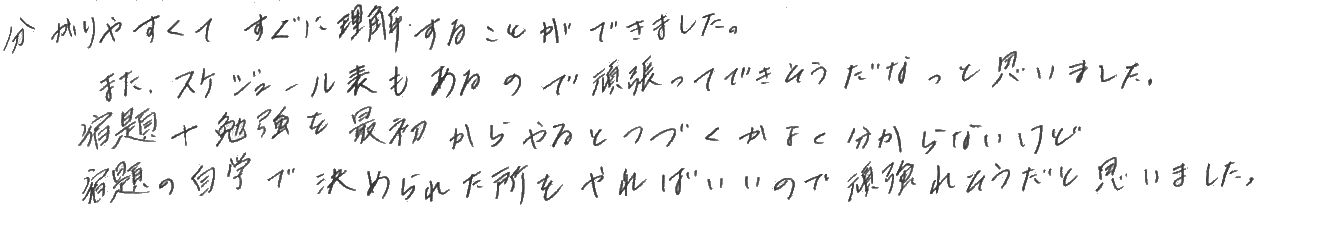 分かりやすくてすぐに理解することができました。
また、スケジュール表もあるので頑張ってできそうだなっと思いました。
宿題+勉強を最初からやるとつづくかよく分からないけど
宿題の自学で決められた所をやればいいので頑強れそうだと思いました。